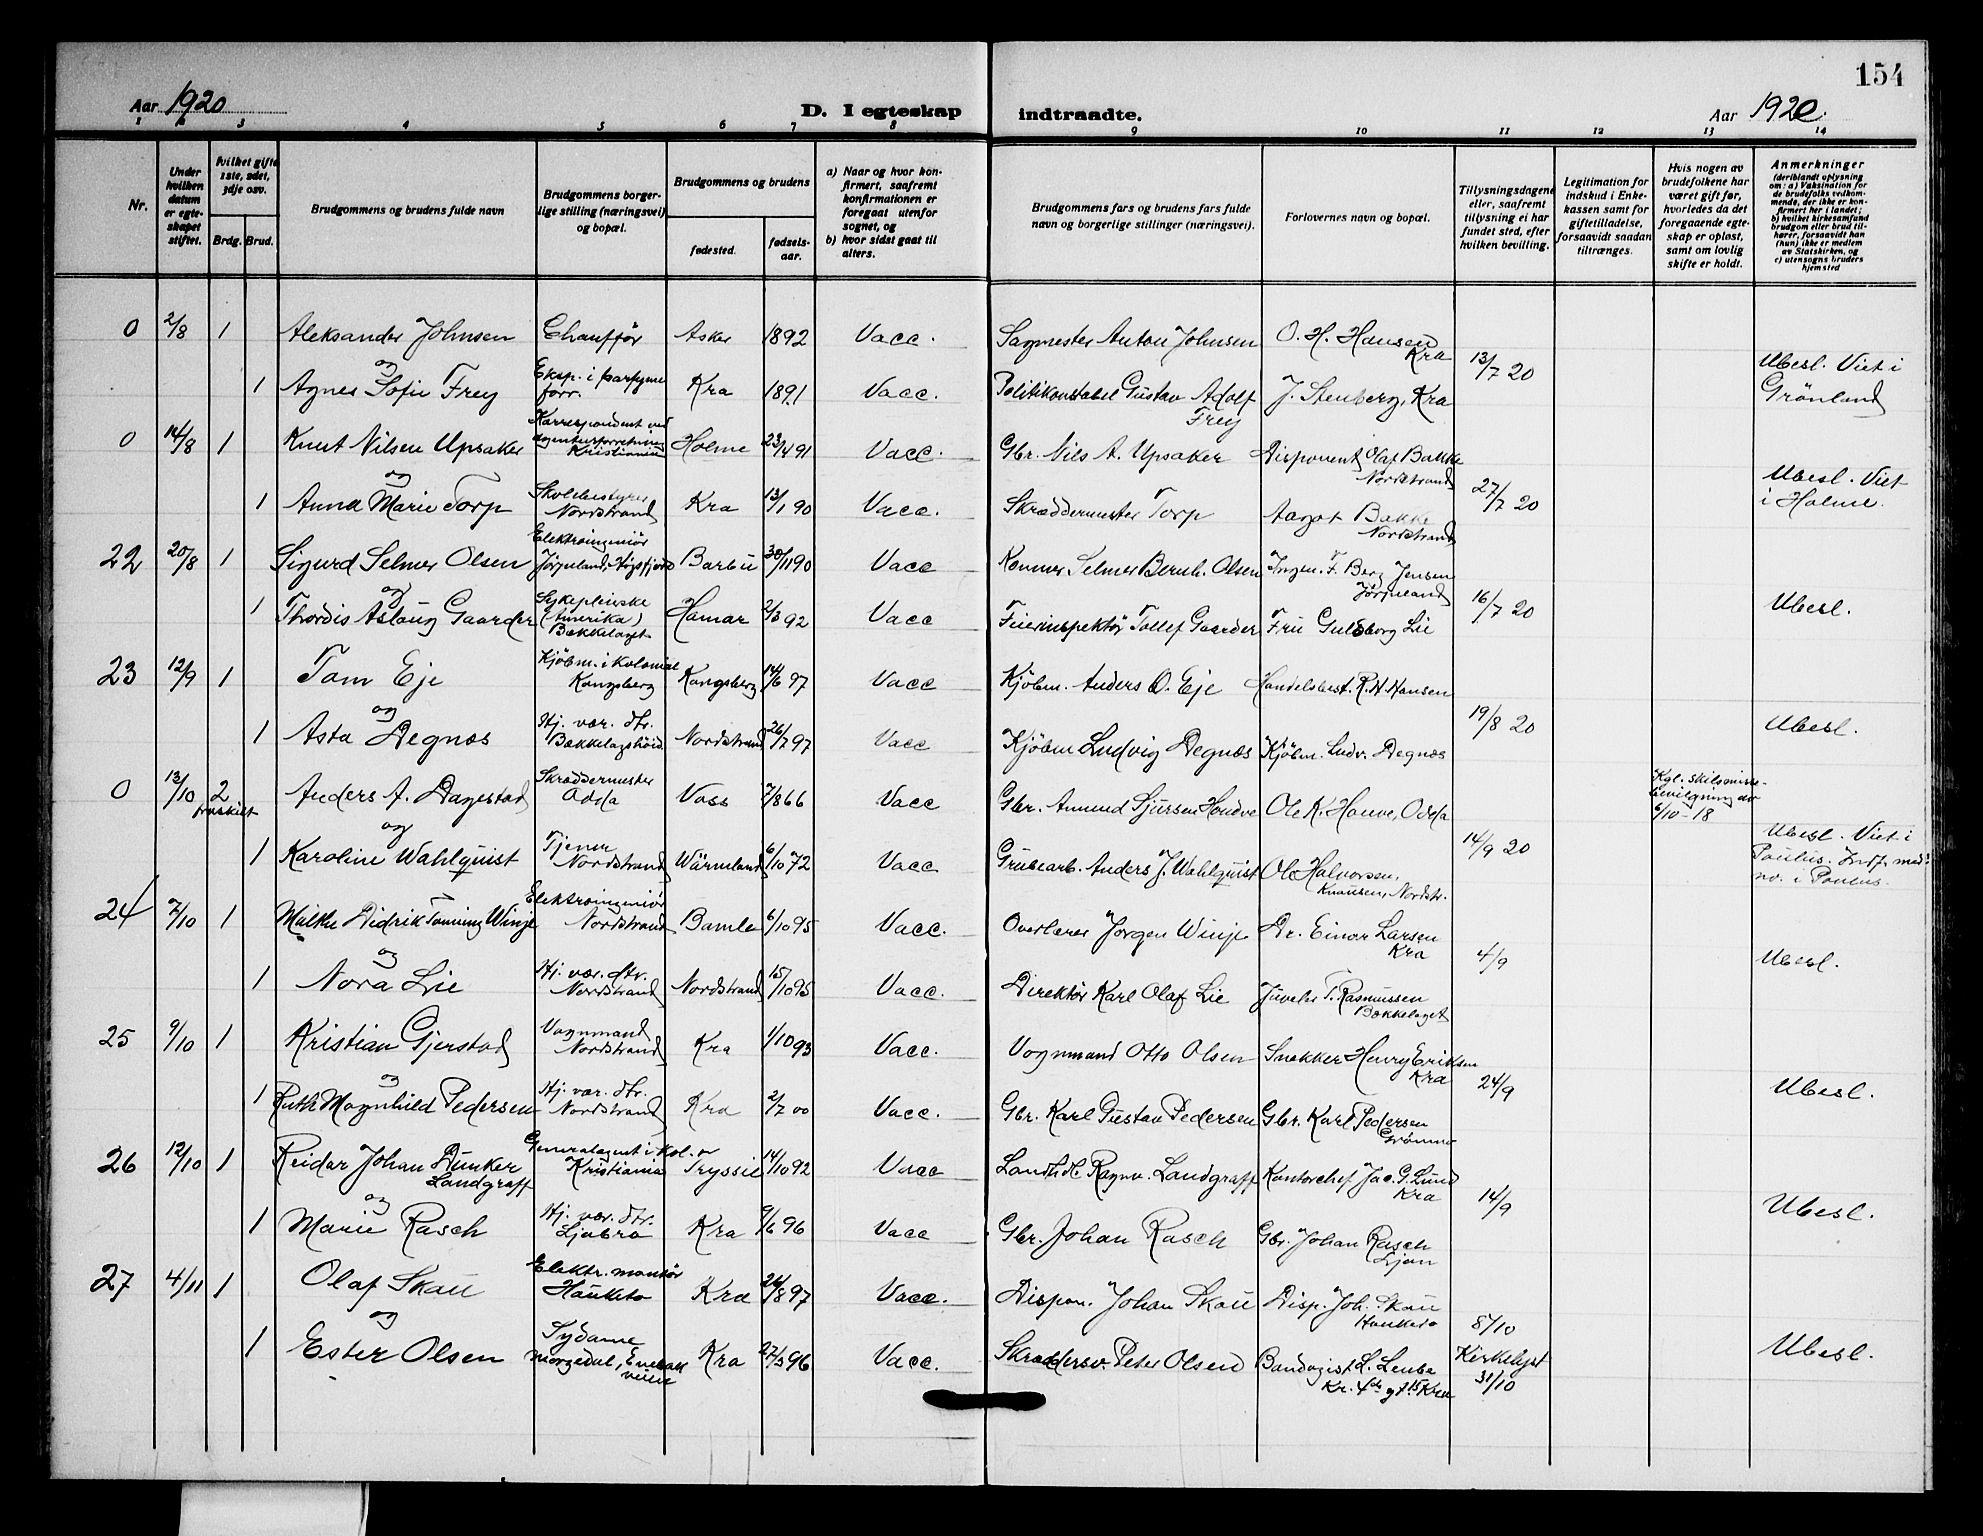 154
Aar 1920
D. I egteskap indtraadte.
Aar 1920.
1 2 3 4 5 6 7 8 9 10 11 12 13 14
Nr.
Under hvilken datum er egteskapet stiftet.
hvilket gifte 1ste, 2det, 3dje osv.
Brdg. Brud.
Brudgommens og brudens fulde navn
Brudgommens borgerlige stilling (næringsvei) og bopæl.
Brudgommens og brudens
fødested.
fødselsaar.
a) Naar og hvor konfirmert, saafremt konfirmationen er foregaat utenfor sognet, og
b) hvor sidst gaat til alters.
Brudgommens fars og brudens fars fulde navn og borgerlige stillinger (næringsvei).
Forlovernes navn og bopæl.
Tillysningsdagene eller, saafremt tillysning ei har fundet sted, efter hvilken bevilling.
Legitimation for indskud i Enkekassen samt for giftetilladelse, forsaavidt saadan tiltrænges.
Hvis nogen av brudefolkene har været gift før, hvorledes da det foregaaende egteskap er opløst, samt om lovlig skifte er holdt.
Anmerkninger (deriblandt oplysning om: a) Vaksination for de brudefolks vedkommende, der ikke er konfirmert her i landet; b) hvilket kirkesamfund brudgom eller brud tilhører, forsaavidt han (hun) ikke er medlem av Statskirken, og c) utensogns bruders hjemsted
0 2/8 1 Aleksander Johnsen Chauffør Asker 1892 Vacc. Sagmester Anton Johnsen O. H. Hansen Kra
og
13/7 20
Ubesl. Viet i Grönland
1 Agnes Sofie Frey Eksp. i parfymeforr. Kra 1891 Vacc. Politikonstabel Gustav Adolf Frey J. Stenberg, Kra
0 14/8 1 Knut Nilsen Upsaker Korrespondent ved agenturforretning Kristiania Holme 23/4 91 Vacc. Gbr. Nils A. Upsaker Disponent Olaf Bakke Nordstrand
og
27/7 20
Ubesl. Viet i Holme.
1 Anna Marie Torp Skolebestyrer Nordstrand Kra 13/1 90 Vacc. Skræddermester Torp Aagot Bakke Nordstrand
22 20/8 1 Sigurd Selmer Olsen Elektroingeniör Jørpeland, Høgsfjord Barbu 30/11 90 Vacc Selmer Bernh. Olsen Ingen. F. Berg Jensen Jørpeland
og
16/7 20
Ubesl.
1 Thordis Aslaug Gaarder Sykepleierske (Amerika) Bækkelaget Hamar 2/3 92 Vacc Feierinspektör Tollef Gaarder Fru Guldborg Lie
23 12/9 1 Tom Eje Kjöbm. i kolonial Kongsberg Kongsberg 14/6 97 Vacc Kjöbm. Anders O. Eje Handelsbest. R. H. Hansen
og
19/8 20
Ubesl.
1 Asta Degnæs Hj. vær. dtr. Bækkelagshöid. Nordstrand 26/7 97 Vacc Kjöbm Ludvig Degnæs Kjöbm. Ludv. Degnæs
0 13/10 2 fraskilt Anders A. Dagestad Skræddermester Odda Voss 7/8 66 Vacc Gbr. Amund Sjursen Houdve Ole K. Hauve, Odda
Kgl. skilsmissebevilgning av 6/10-18
og
14/9 20
Ubesl. Viet i Paulus. Indf. med no. i Paulus.
1 Karoline Wahlquist Tjener Nordstrand Wärmland 6/10 72 Vacc Grubearb. Anders J. Wahlquist Ole Halvorsen, Knausen, Nordstr.
24 7/10 1 Malthe Didrik Tönning Winje Elektroingeniör Nordstrand Bamle 6/10 95 Vacc. Overlærer Jørgen Winje Dr. Einar Larsen Kra
og
4/9
Ubesl.
1 Nora Lie Hj. vær. dtr. Nordstrand Nordstrand 15/10 95 Vacc. Direktör Karl Olaf Lie Juveler T. Rasmussen Bækkelaget
25 9/10 1 Kristian Gjerstad Vognmand Nordstrand Kra 1/10 93 Vacc. Vognmand Otto Olsen Snekker Henry Eriksen Kra
og
24/9
Ubesl.
1 Ruth Magnhild Pedersen Hj. vær. dtr. Nordstrand Kra 2/7 00 Vacc. Gbr. Karl Gustav Pedersen Gbr. Karl Pedersen Grönmo
26 12/10 1 Reidar Johan Dunker Landgraff Generalagent i kol. v Kristiania Tryssil 14/10 92 Vacc Landh.dl. Ragnv. Landgraff Kontorchef Jac. G. Lund Kra
og
14/9
Ubesl.
1 Marie Rasch Hj. vær. dtr. Ljabro Kra 9/6 96 Vacc Gbr. Johan Rasch Gbr. Johan Rasch Ljan
27 4/11 1 Olaf Skau Elektr. montör Hauketo Kra 24/8 97 Vacc. Dispon. Johan Skau Disp. Joh. Skau Hauketo
og
8/10
Kirkelyst 31/10
Ubesl.
1 Ester Olsen Sydame Morgedal, Enebakveien Kra 27/3 96 Vacc. Skræddersv. Peter Olsen Bandagist L. Leube Kr. 4des g 7 15 Kra